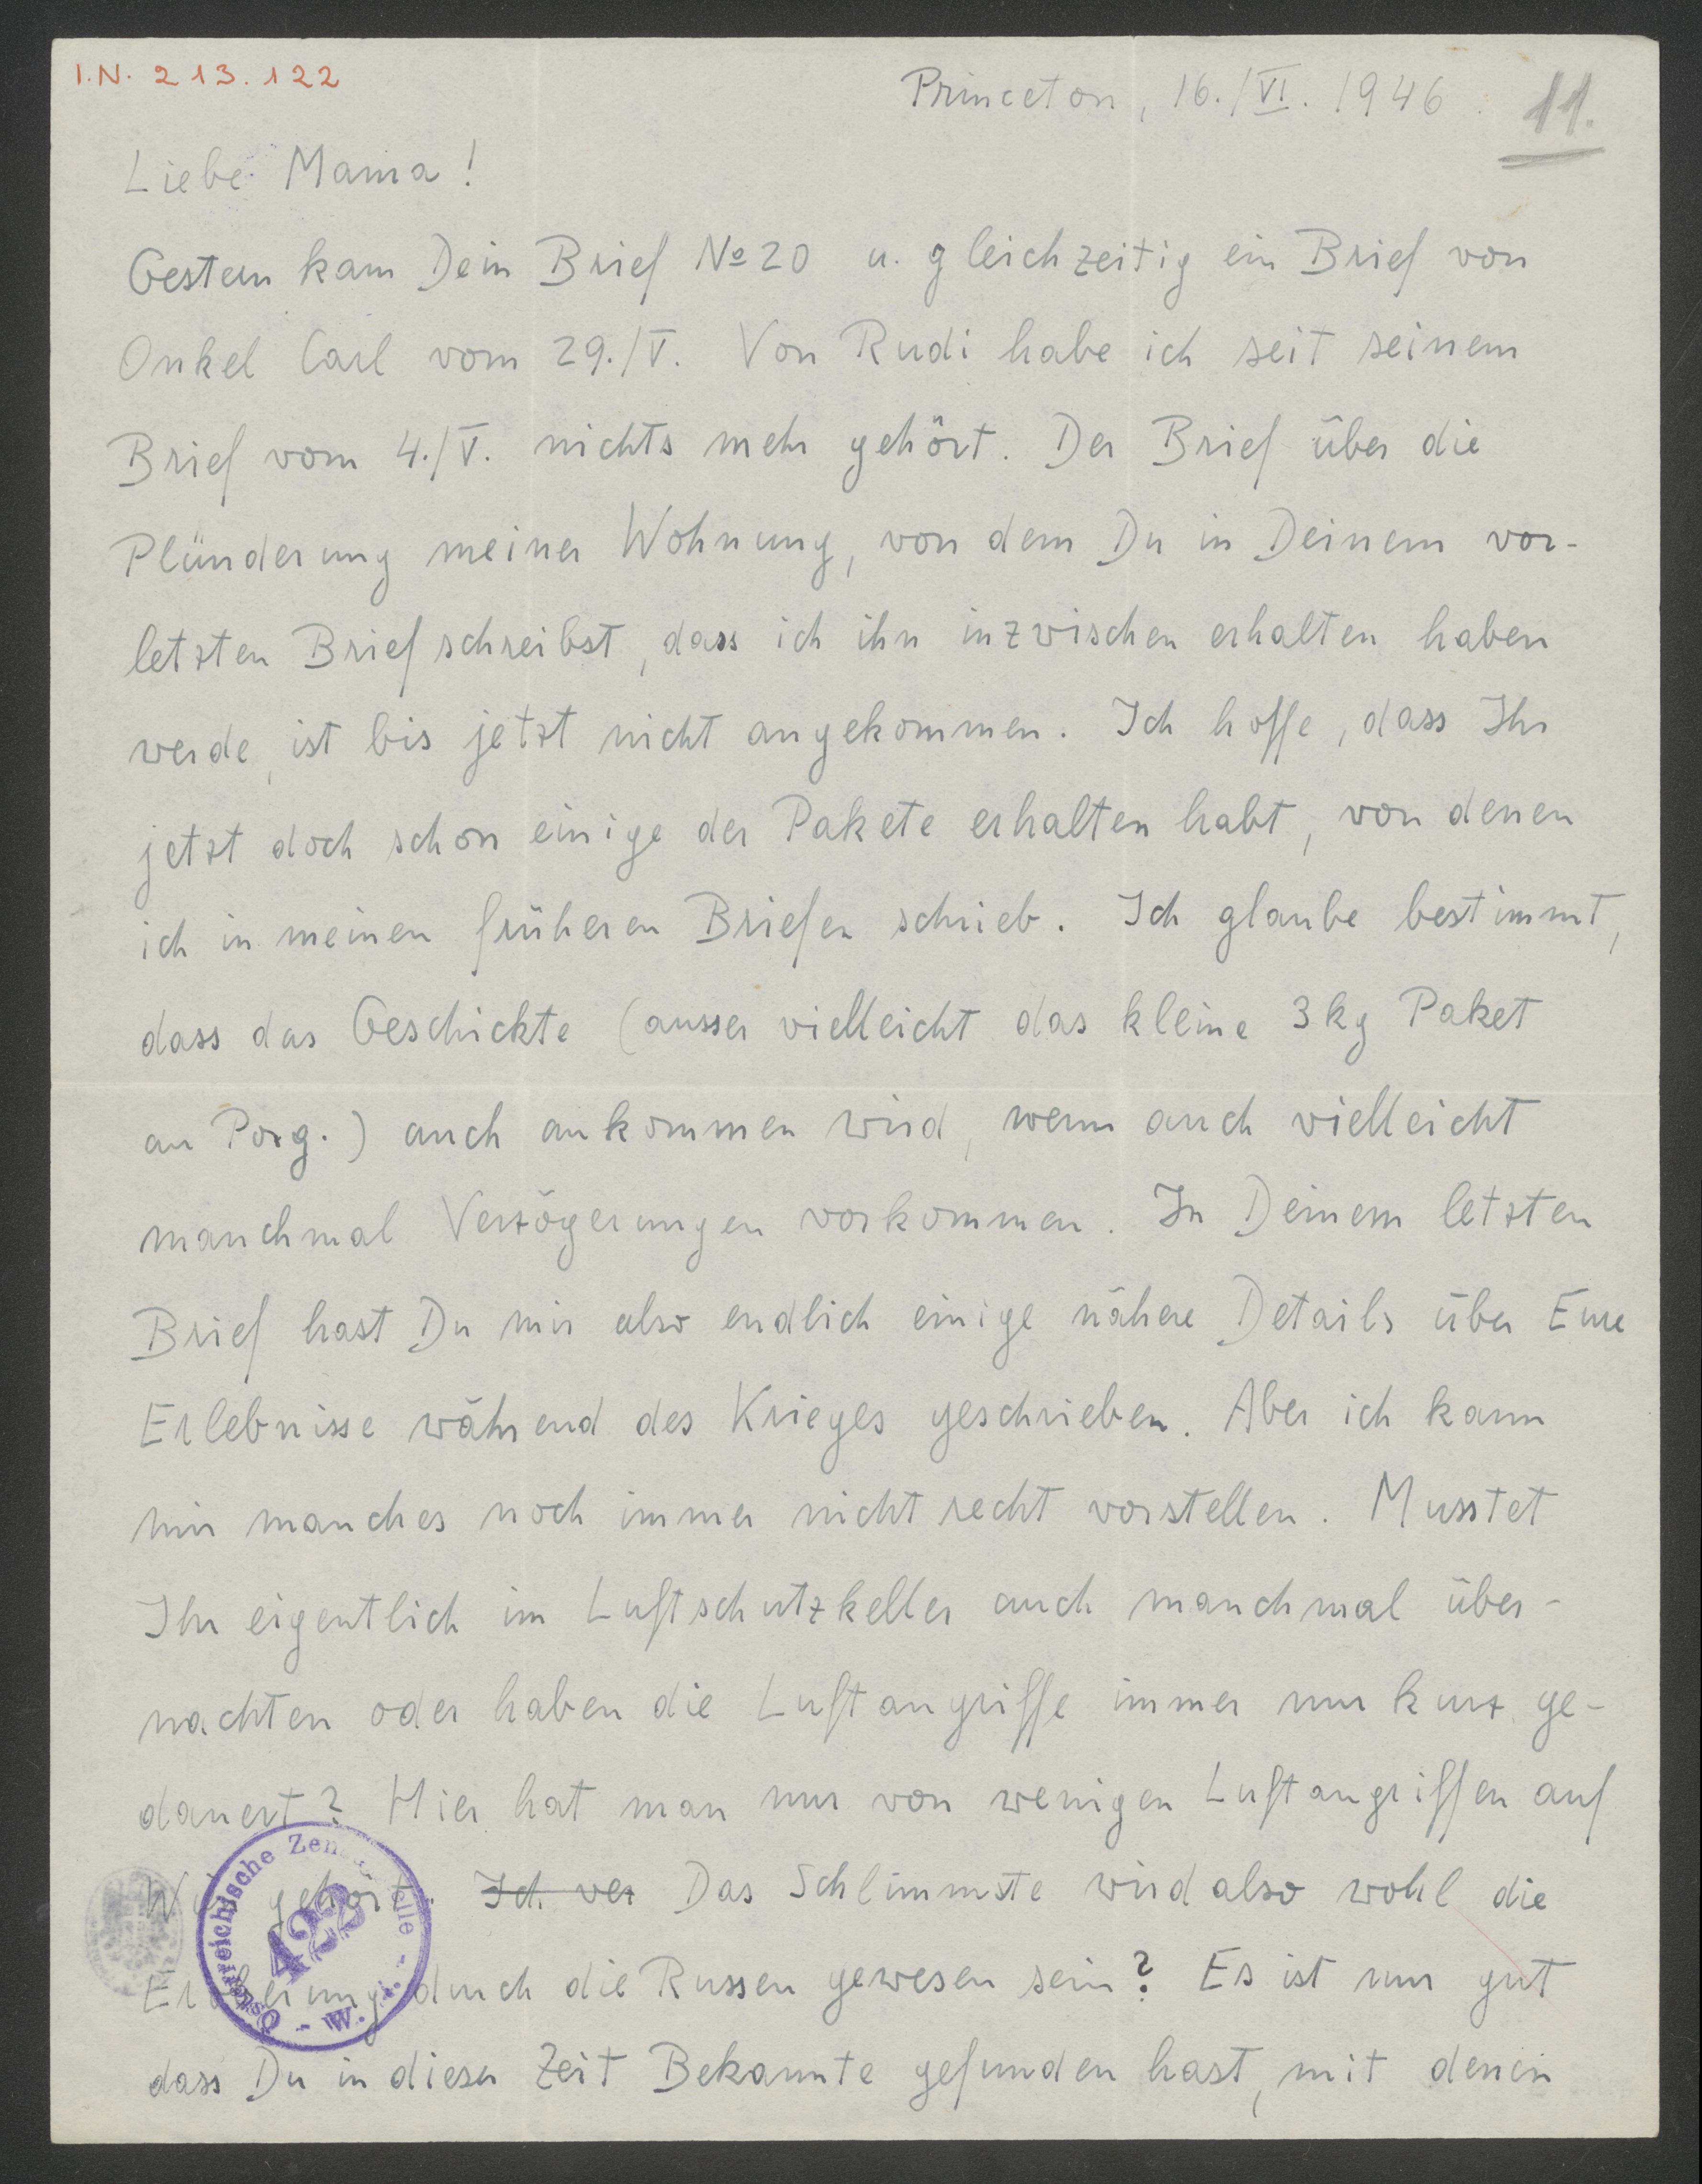 I.N. 213.122
Princeton, 16./VI. 1946.
11.
Liebe Mama!
Gestern kam Dein Brief No 20 u. gleichzeitig ein Brief von
Onkel Carl vom 29./V. Von Rudi habe ich seit seinem
Brief vom 4./V. nichts mehr gehört. Der Brief über die
Plünderung meiner Wohnung, von dem Du in Deinem vor-
letzten Brief schreibst, dass ich ihn inzwischen erhalten haben
werde, ist bis jetzt nicht angekommen. Ich hoffe, dass Ihr
jetzt doch schon einige der Pakete erhalten habt, von denen
ich in meinen früheren Briefen schrieb. Ich glaube bestimmt,
dass das Geschickte (ausser vielleicht das kleine 3 kg Paket
an Porg.) auch ankommen wird, wenn auch vielleicht
manchmal Verzögerungen vorkommen. In Deinem letzten
Brief hast Du mir also endlich einige nähere Details über Eure
Erlebnisse während des Krieges geschrieben. Aber ich kann
mir manches noch immer nicht recht vorstellen. Musstet
Ihr eigentlich im Luftschutzkeller auch manchmal über-
nachten oder haben die Luftangriffe immer nur kurz ge-
dauert? Hier hat man nur von wenigen Luftangriffen auf
Wien gehört. Ich ver Das Schlimmste wird also wohl die
Eroberung durch die Russen gewesen sein? Es ist nur gut
dass Du in dieser Zeit Bekannte gefunden hast, mit denen
Österreichische
422
W.